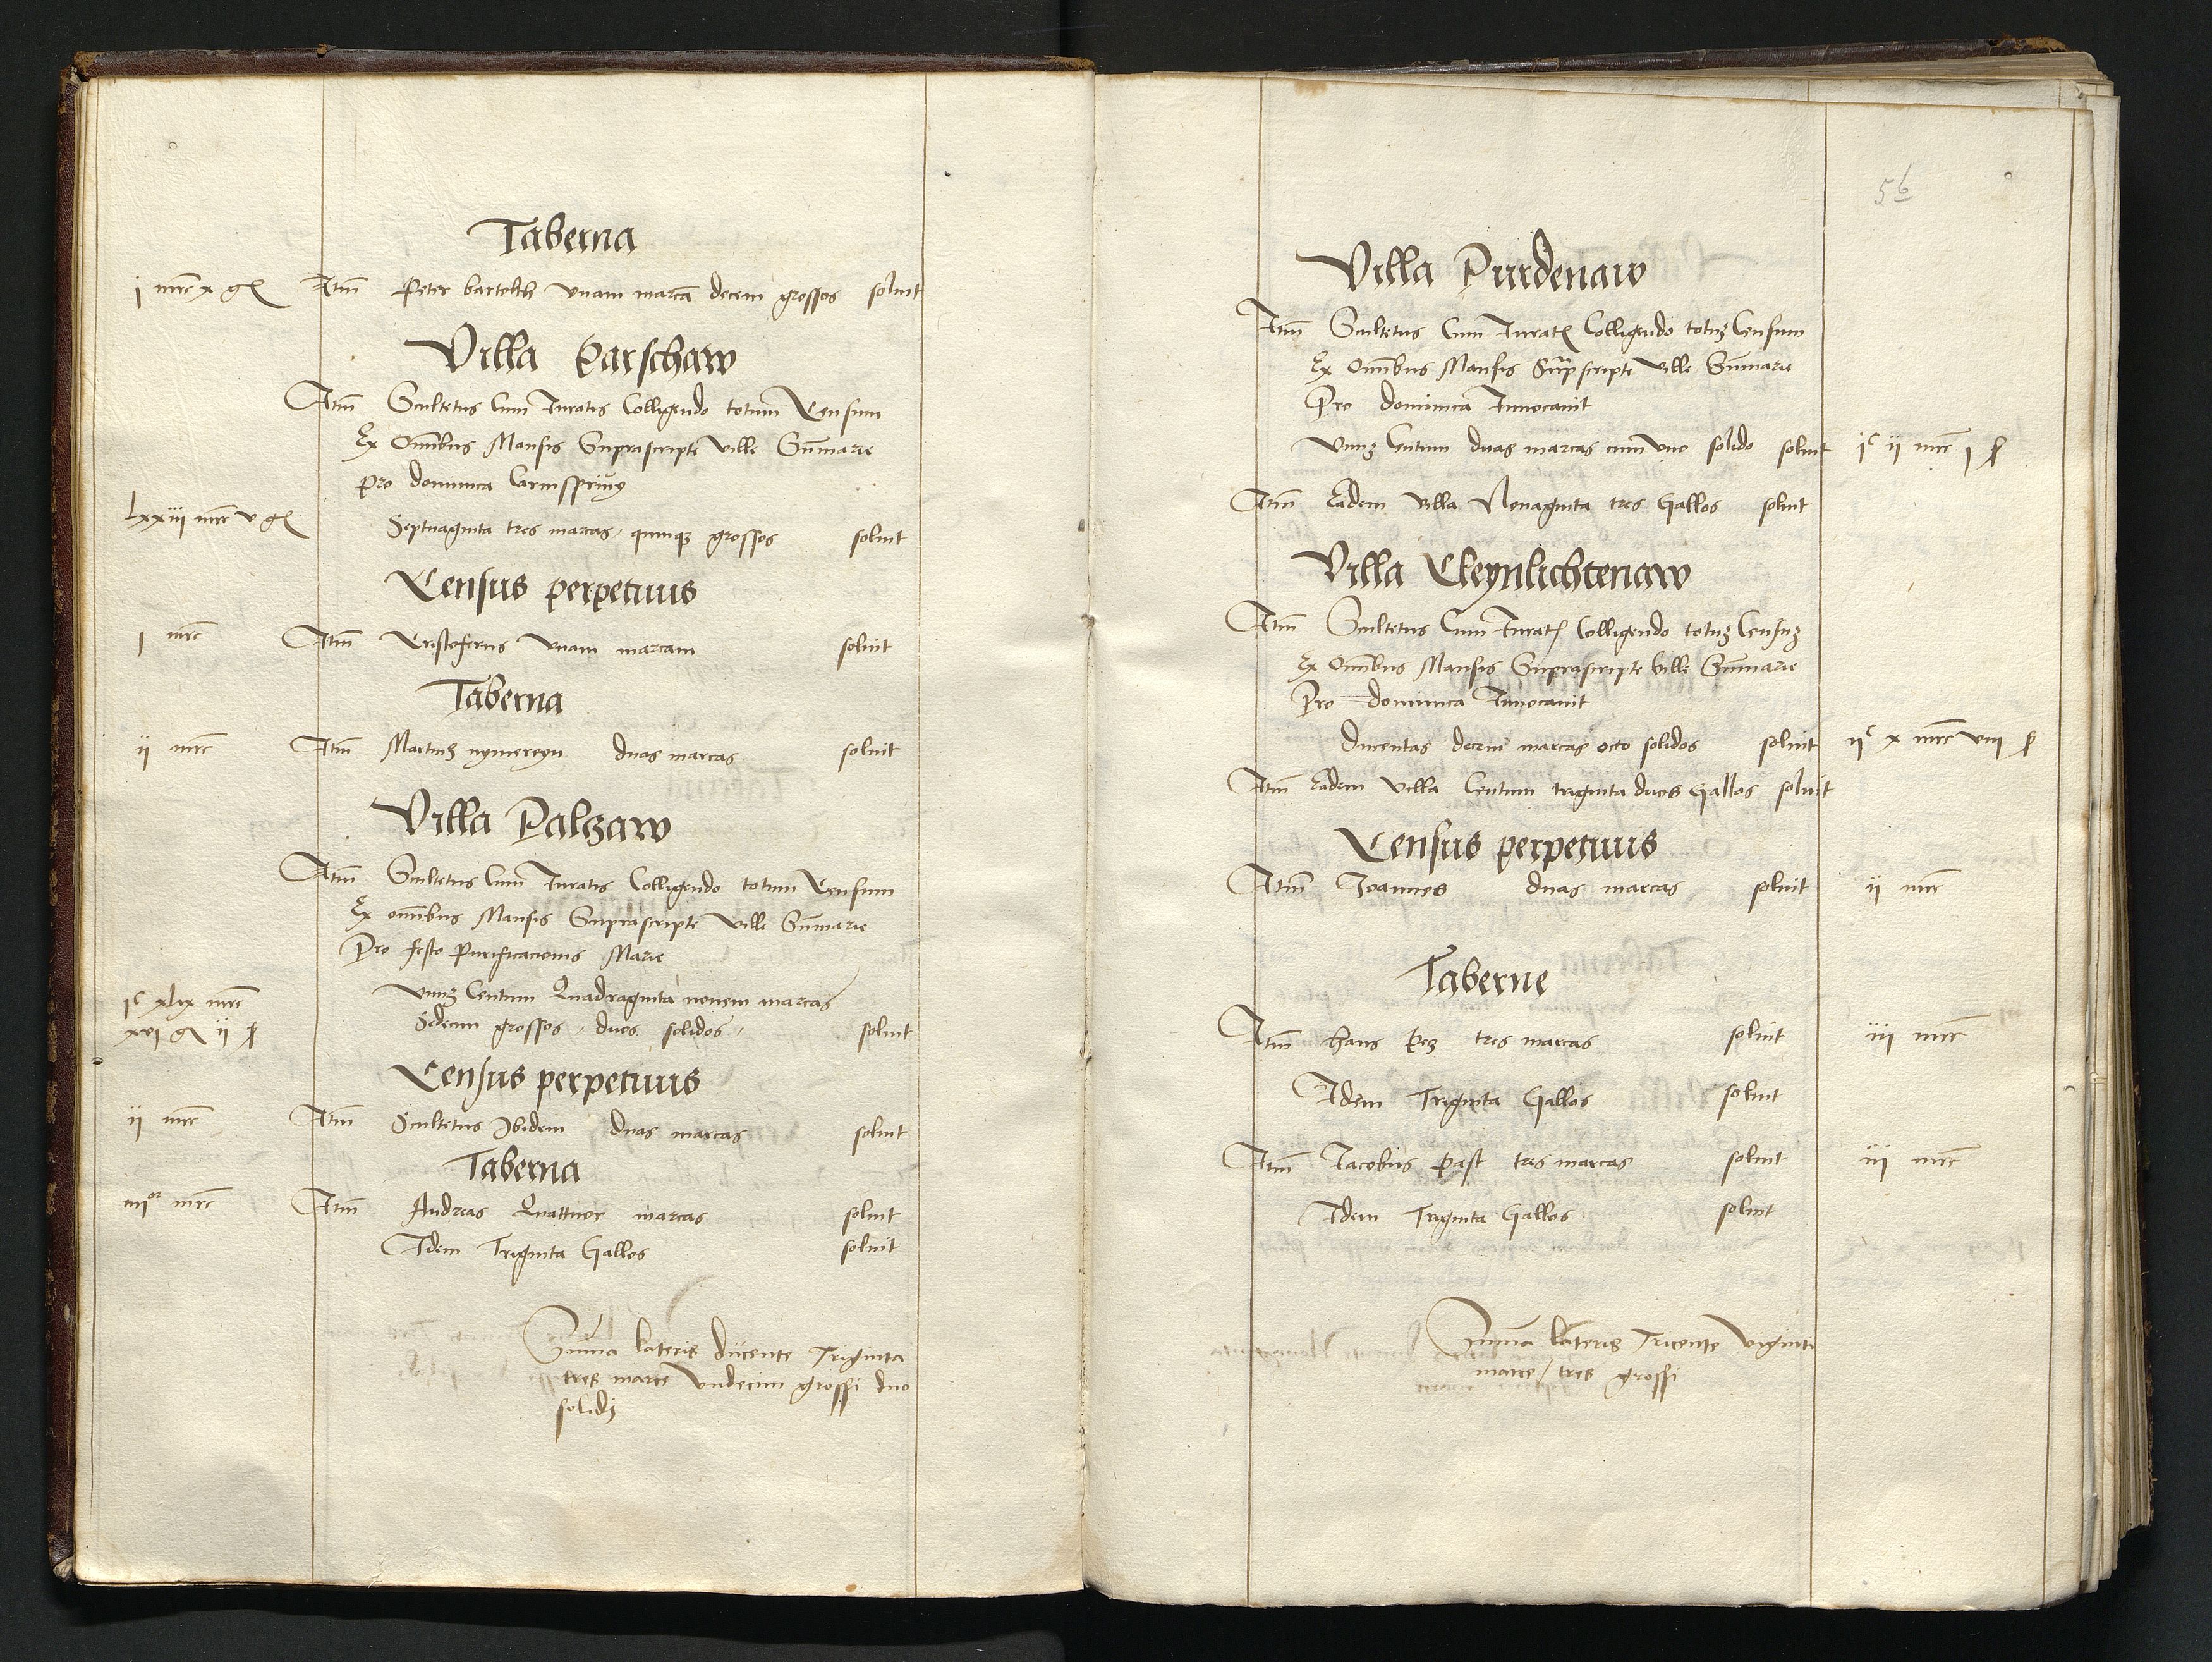 Taberna
i mrc x gr Itm Peter bartolth vnam marcā decem grossos soluit
Villa Karschaw
Itm Scultetus Cum Iuratis Colligendo totum Censum
Ex Omībus Mansis Suprascripte Ville Sūmarie
pro dominica
lxxiii mrc v gr Septuaginta tres marcas quinqz grossos soluit
Census perpetuus
i mrc Itm Cristoferus vnam marcam soluit
Taberna
ii mrc Itm Martinz nymereyn duas marcas soluit
Villa Palzaw
Itm Scultetus Cum Iuratis Colligendo totum Censum
Ex omībus Mansis Suprascripte Ville Sūmarie
Pro festo Purificacionis Marie
iᶜ xlix mrc vnuz Centum Quadraginta nouem marcas
xvi gr ii ꝓ Sedecim grossos / duos solidos / soluit
Census perpetuus
ii mrc Itm Scultetus Ibidem duas marcas soluit
Taberna
iiiiᵒʳ mrc Itm Andreas Quattuor marcas soluit
Idem Triginta Gallos soluit
Sūma lateris ducente Triginta
tres marce Vndecim grossi duo
solidj
56
Villa Purdenaw
Itm Scultetus Cum Iuratꝭ Colligendo totuz Censum
Ex Omībus Mansis Supᵃscripte Ville Sūmarie
Pro dominica Inuocauit
vnuz Centum duas marcas cum vno solido soluit iᶜ ii mrc i ꝓ
Itm Eadem villa Nonaginta tres Gallos soluit
Villa Cleynlichtenaw
Itm Scultetus Cum Iuratꝭ Colligendo totuz Censuz
Ex Omībus Mansis Suprascripte Ville Sūmarie
Pro dominica Inuocauit
Ducentas decem marcas octo solidos soluit iiᶜ x mrc viii ꝓ
Itm Eadem Villa Centum triginta duos Gallos soluit
Census perpetuus
Itm Joannes duas marcas soluit ii mrc
Taberne
Itm hans kez tres marcas soluit iii mrc
Idem Triginta Gallos soluit
Itm Jacobus past tres marcas soluit iii mrc
Idem Triginta Gallos soluit
Sūma lateris Tricente viginti
marce / tres grossi